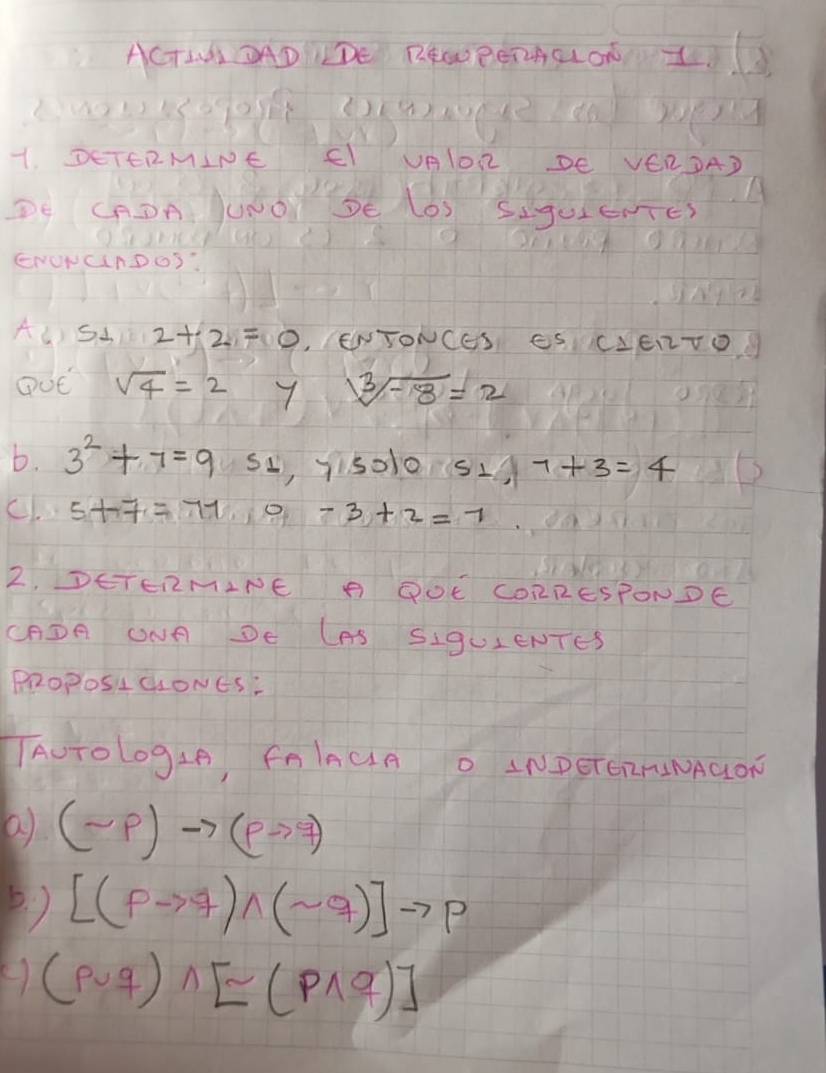 ACTIVIDAD DE RECUPERACIOÑ 1.
1. DETERMINE El VAlOR DE VERDAD
DE CADA UNO DE los SIgUIENTES
ENUNCIADOS:
A. SI 2+2=0, ENTONCES ES CIERTO
QUÉ √4=2 y ∛-8=2
b. 3²+1=9 SI, y solo SI, 1+3=4
C. 5+7=11 o -3+2=1.
2. DETERMINE A QUÉ CORRESPONDE
CADA UNA DE LAS SIgUIENTES
PROPOSICIONES:
TAUTOlogIA, FAlACIA O INDETERMINACIOÑ
a) (~P) → (p→q)
b.) [(P→q)∧(~q)]→p
c) (p∪q) ∧ [~(p∧q)]